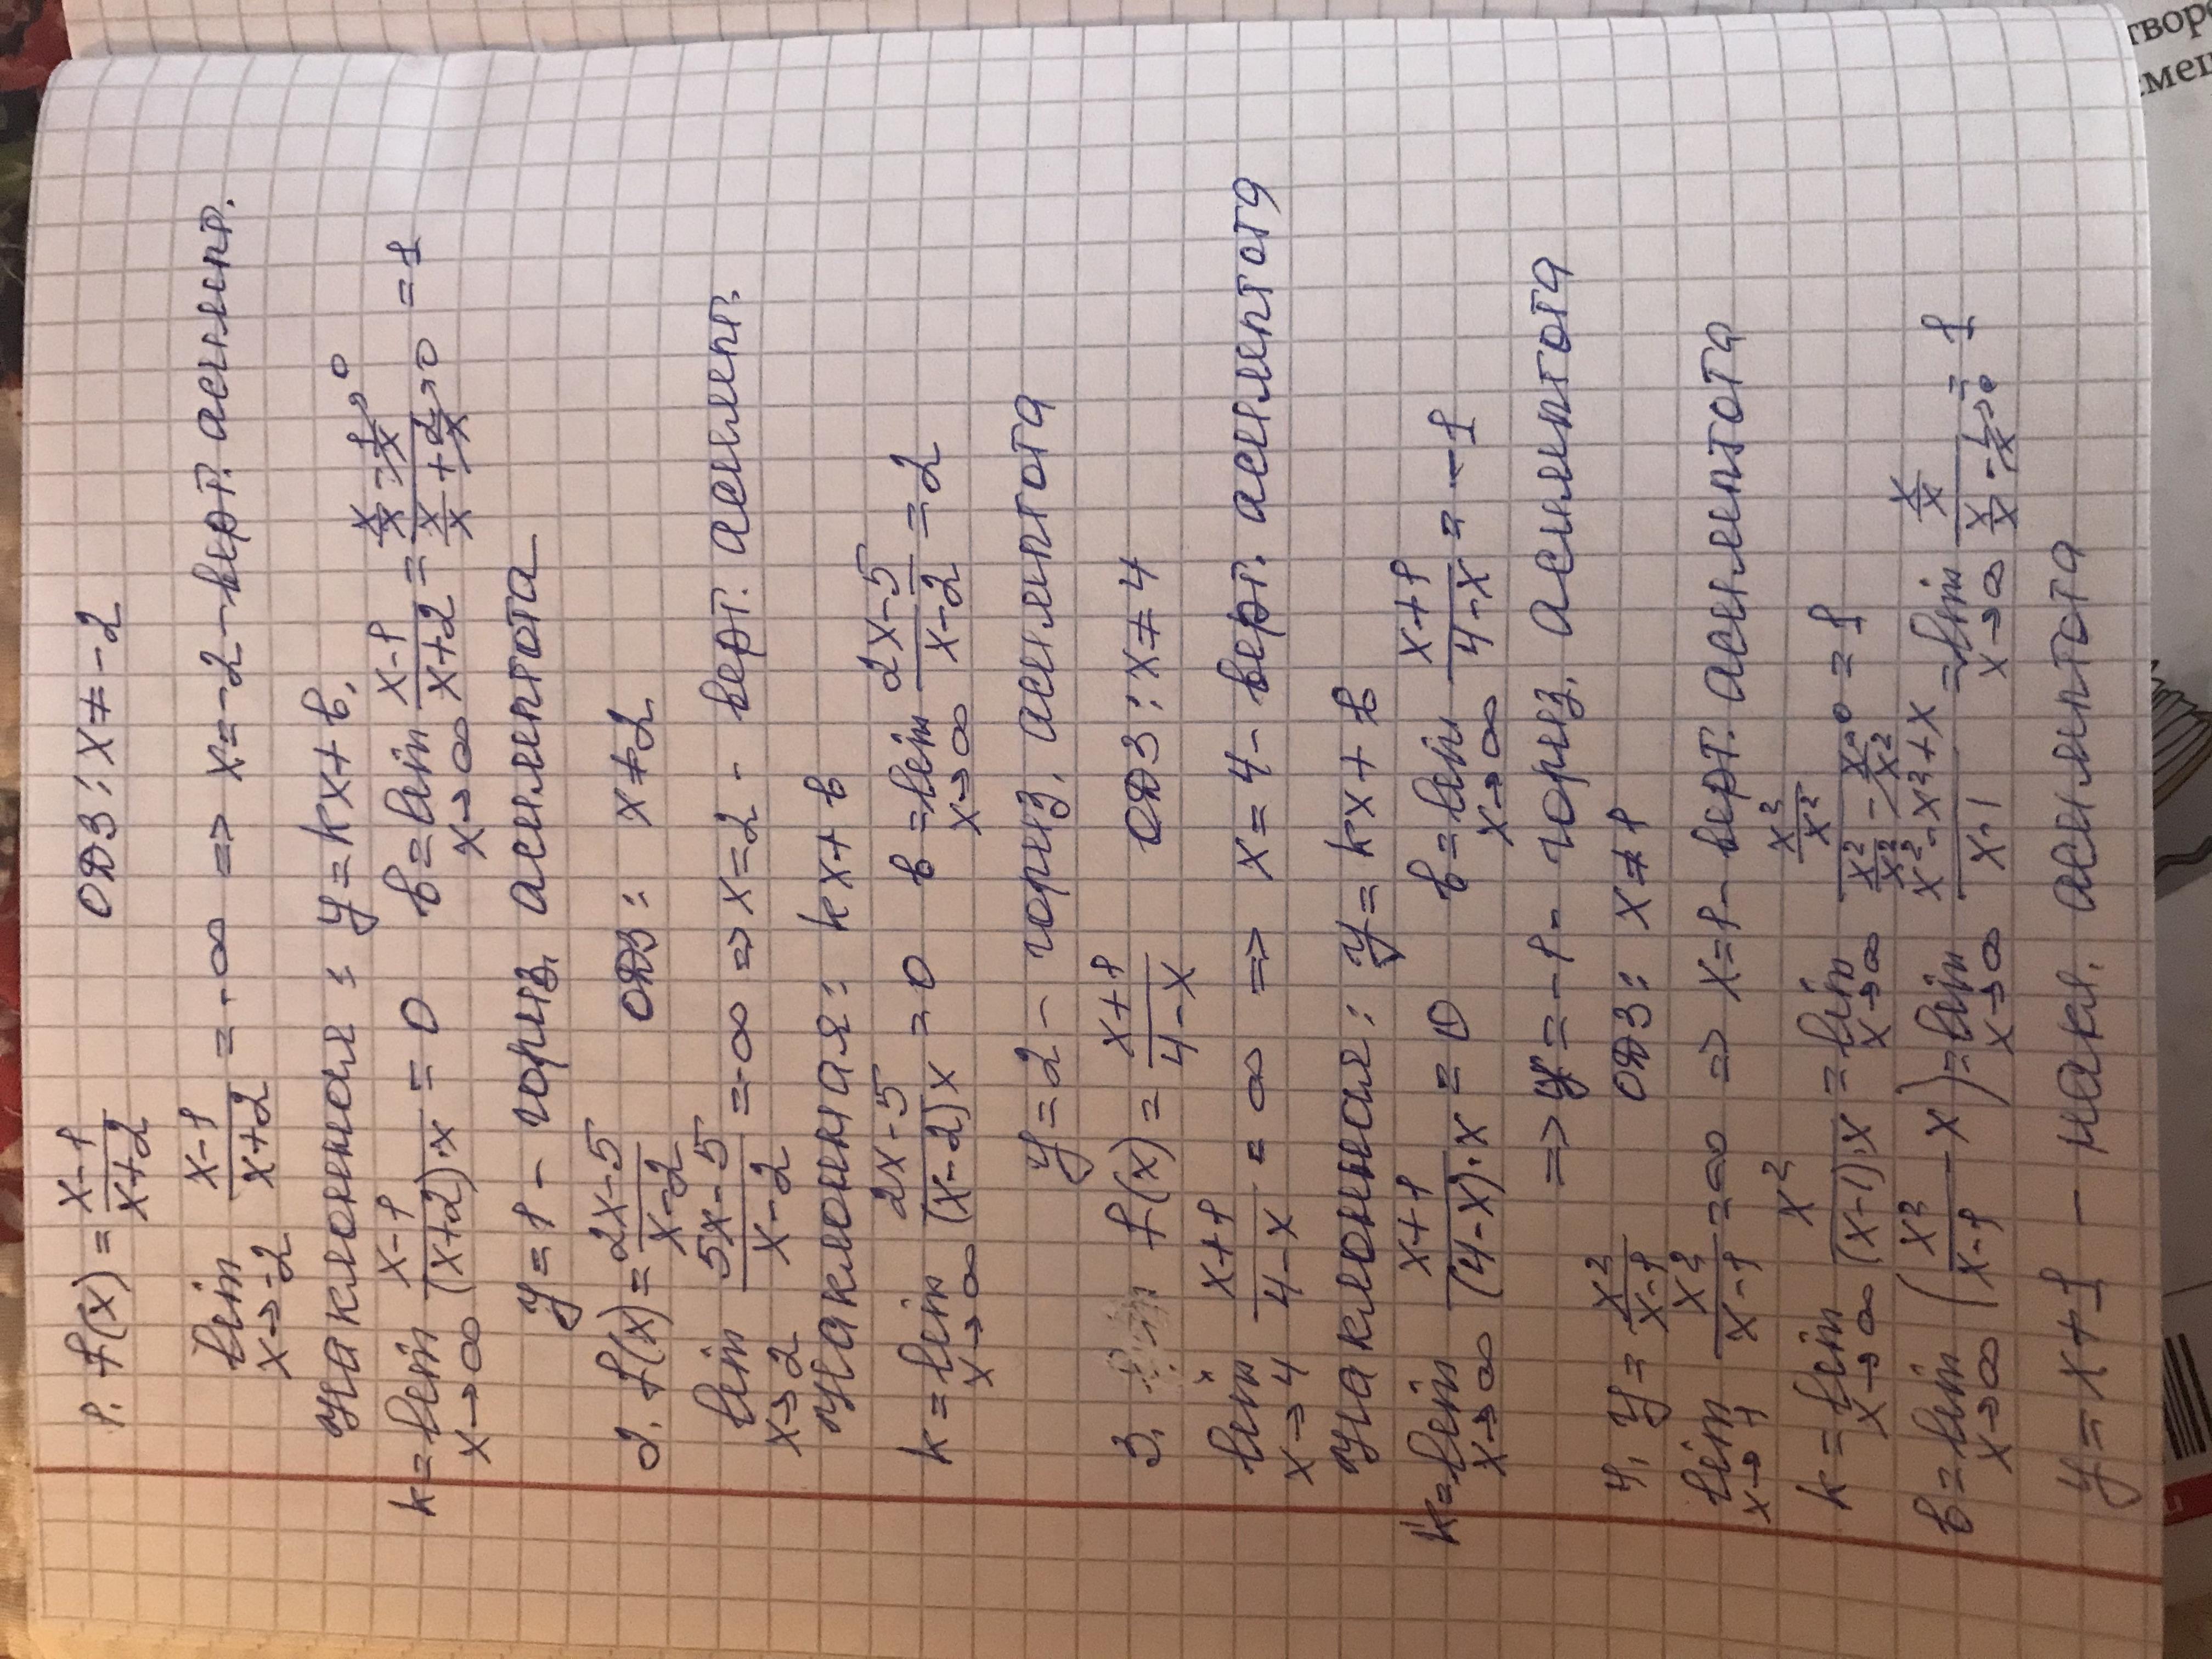 1. f(x) = (x-1)/(x+2)   ОДЗ: x ≠ -2
lim x→-2 (x-1)/(x+2) = -∞ => x = -2 - верт. асимпт.
наклонная: y = kx + b,
k = lim x→∞ (x-1)/((x+2)·x) = 0   b = lim x→∞ (x-1)/(x+2) = (x/x - 1/x→0)/(x/x + 2/x→0) = 1
y = 1 - гориз. асимптота
2. f(x) = (2x-5)/(x-2)   ОДЗ: x ≠ 2
lim x→2 (5x-5)/(x-2) = -∞ => x = 2 - верт. асимпт.
наклонная: kx + b
k = lim x→∞ (2x-5)/((x-2)x) = 0   b = lim x→∞ (2x-5)/(x-2) = 2
y = 2 - гориз. асимптота
3. f(x) = (x+1)/(4-x)   ОДЗ: x ≠ 4
lim x→4 (x+1)/(4-x) = ∞ => x = 4 - верт. асимптота
наклонная: y = kx + b
k = lim x→∞ (x+1)/((4-x)·x) = 0   b = lim x→∞ (x+1)/(4-x) = -1
=> y = -1 - гориз. асимптота
4. y = x²/(x-1)   ОДЗ: x ≠ 1
lim x→1 x²/(x-1) = ∞ => x = 1 - верт. асимптота
k = lim x→∞ x²/((x-1)·x) = lim x→∞ (x²/x²)/(x²/x² - x/x²→0) = 1
b = lim x→∞ (x²/(x-1) - x) = lim x→∞ (x²-x²+x)/(x-1) = lim x→∞ (x/x)/(x/x - 1/x→0) = 1
y = x + 1 - накл. асимптота